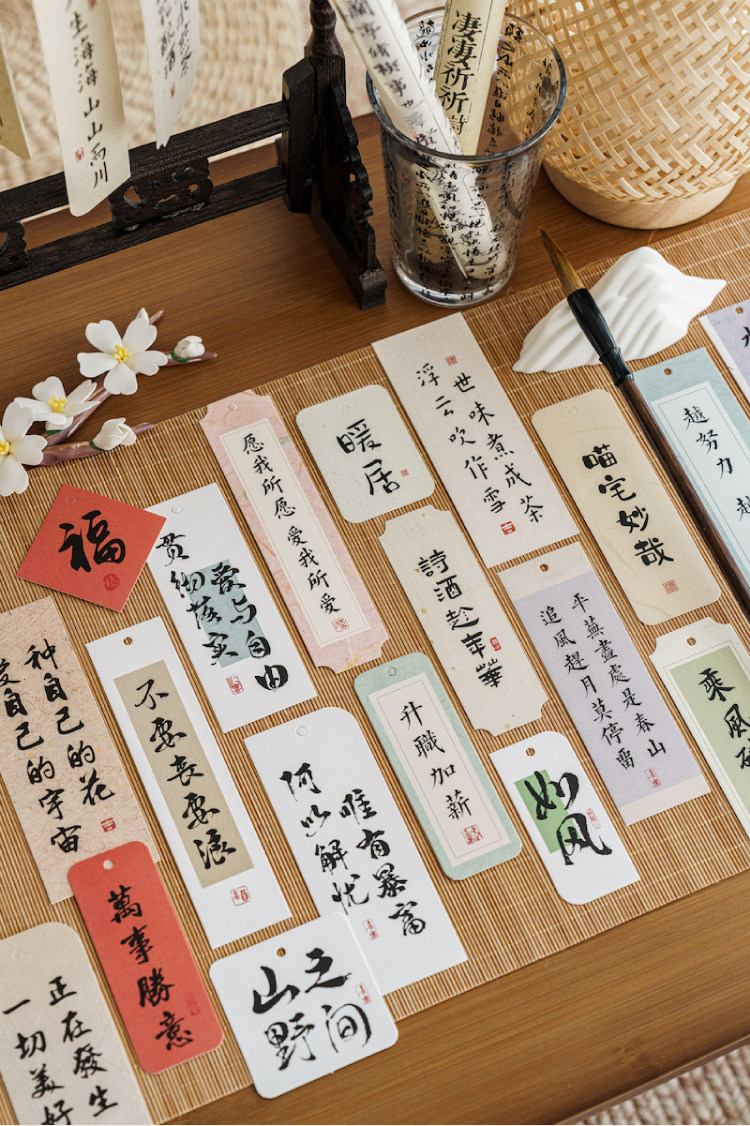 生海海山山而川
愿我所愿 愛我所愛
暖居
浮云吹作雪
世味煮成茶
喵宅妙哉
越努力 越
福
贯彻落实
愛与自由
詩酒趁年華
追風趕月莫停留
平蕪盡處是春山
乘風破
种自己的花
愛自己的宇宙
不要丧要浪
升職加薪
如风
何以解忧
唯有暴富
萬事勝意
山野
之间
一切美好
正在發生